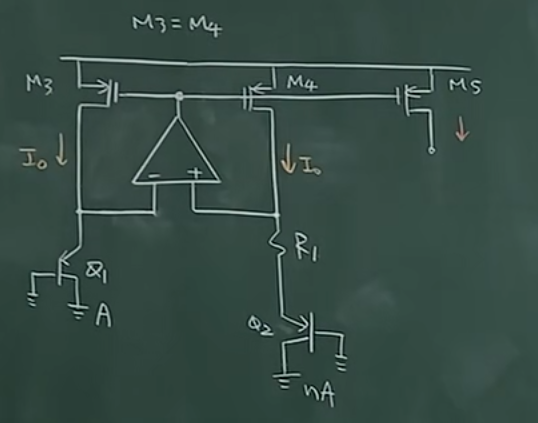 M3=M4
M3
M4
M5
I₀
- +
I₀
R₁
Q₁
A
Q₂
nA